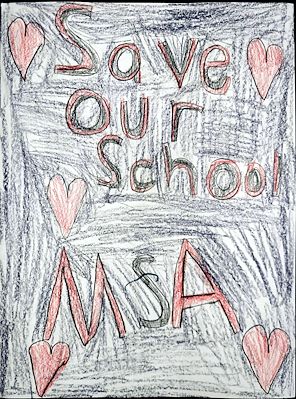 Save
our
School
MSA